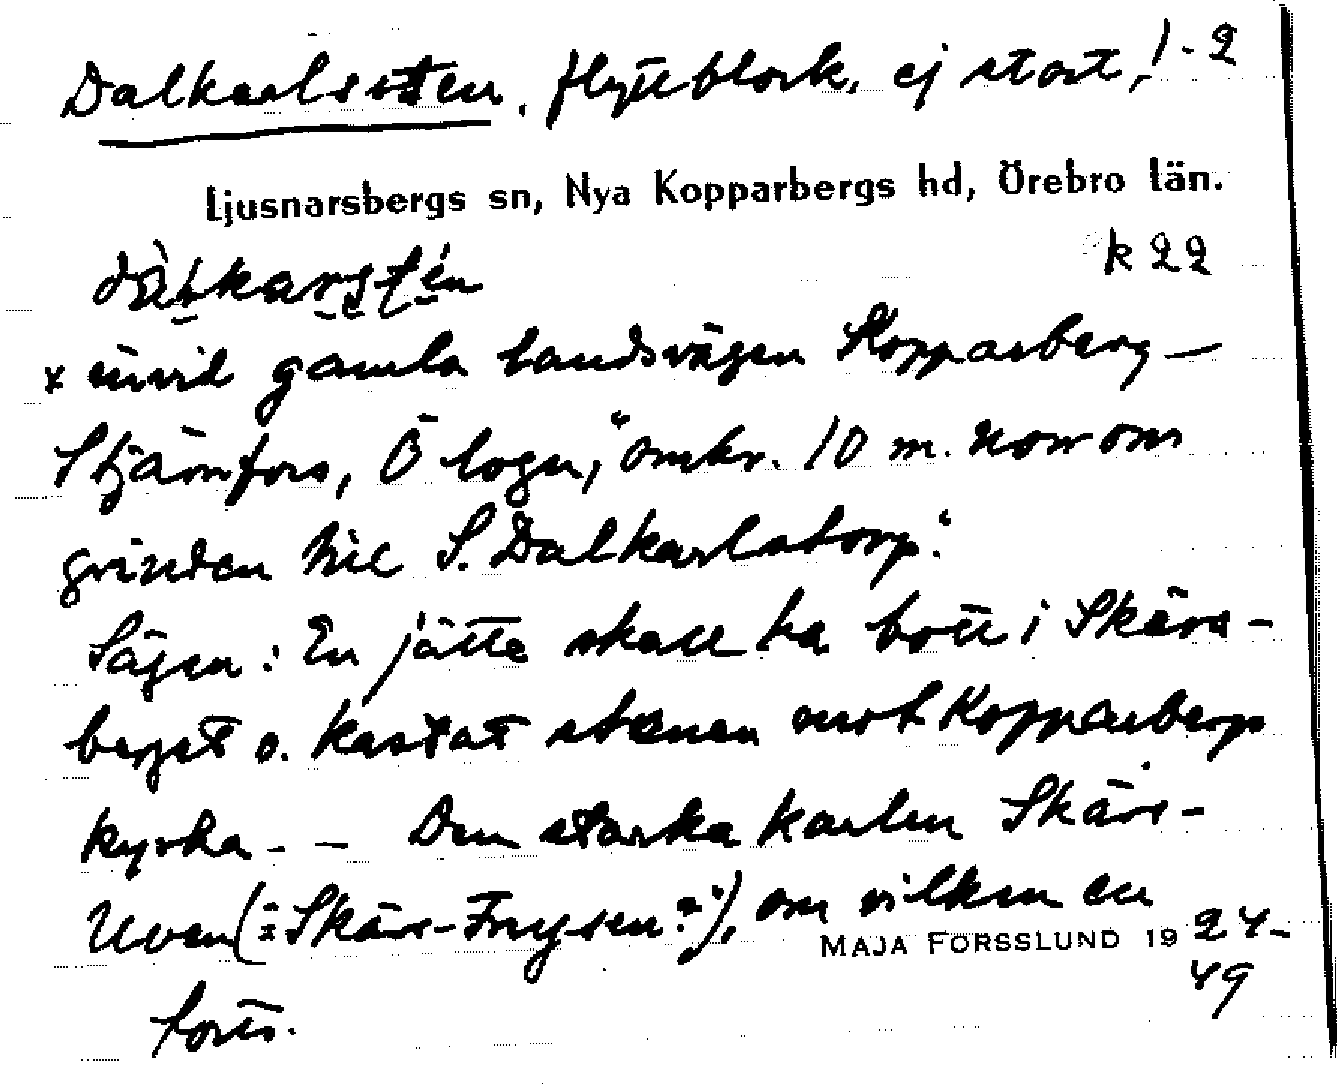 Dalkarlssten, flyttblock, ej stort, 1-2
Ljusnarsbergs sn, Nya Kopparbergs hd, Örebro län.
k 22
x invid gamla landsvägen Kopparberg—
Stjärnfors, Ö logen, "omkr. 10 m. norr om
grinden till S. Dalkarlstorp."
Sägen: En jätte skall ha bott i Skärs-
berget o. kastat stenen mot Kopparbergs
kyrka. — Den starka karlen Skärs-
Uven (= Skärs-Frysen?), om vilken en
MAJA FORSSLUND 1924-
49
forts.